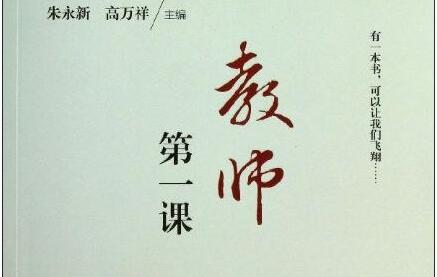 朱永新 高万祥/主编
教师
第一课
有一本书，可以让我们飞翔……